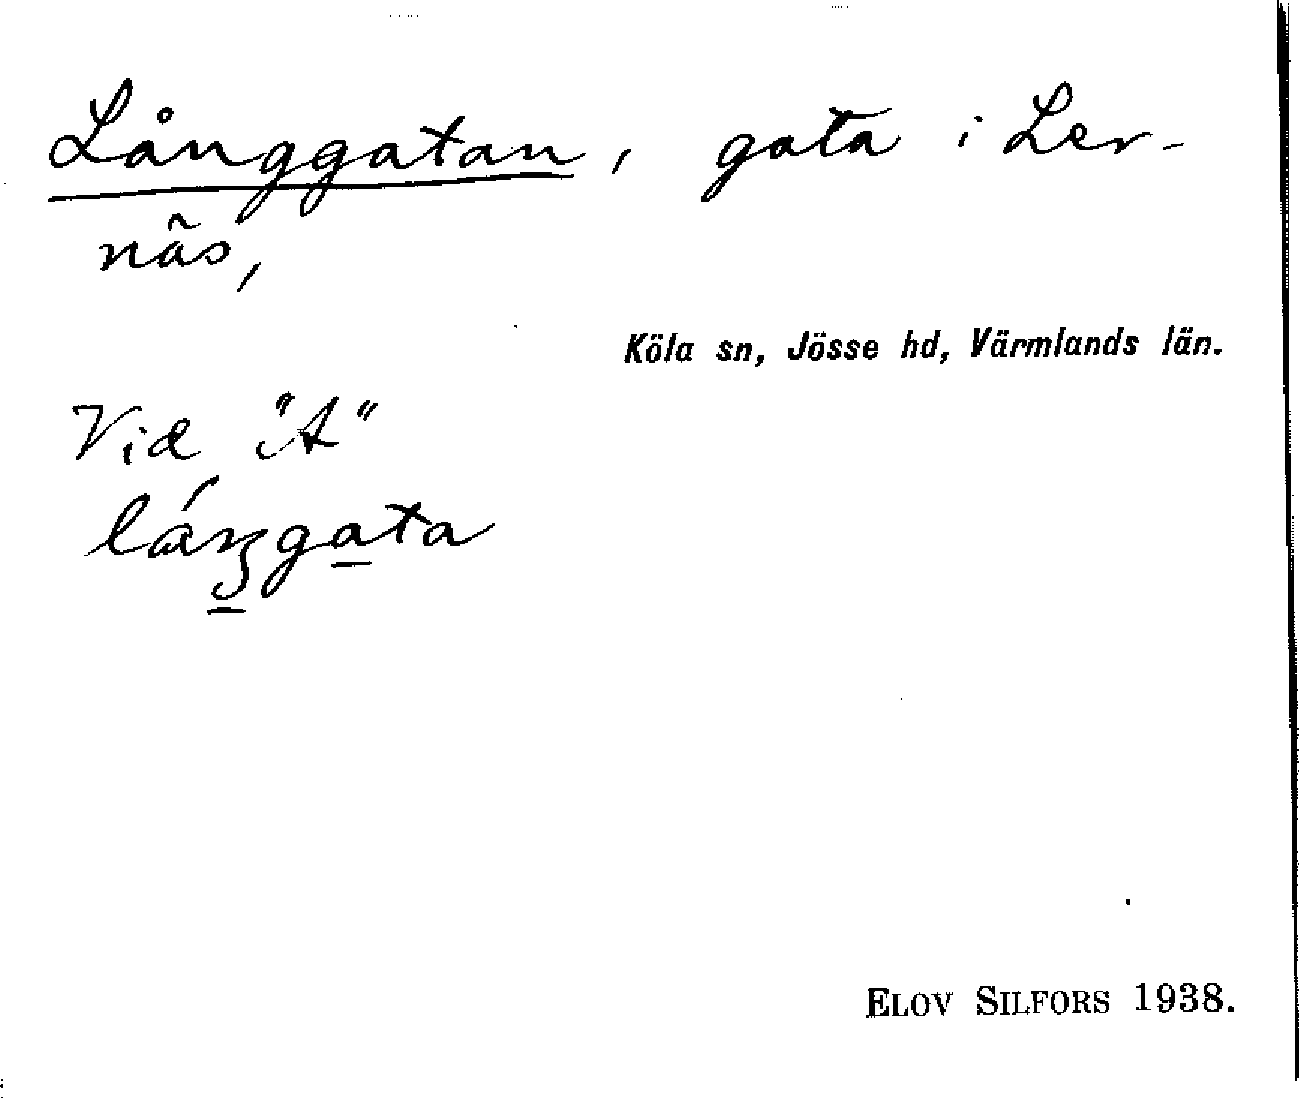 Långgatan, gata i Ler-
näs,
Köla sn, Jösse hd, Värmlands län.
Vid "A"
låŋgata
ELOV SILFORS 1938.